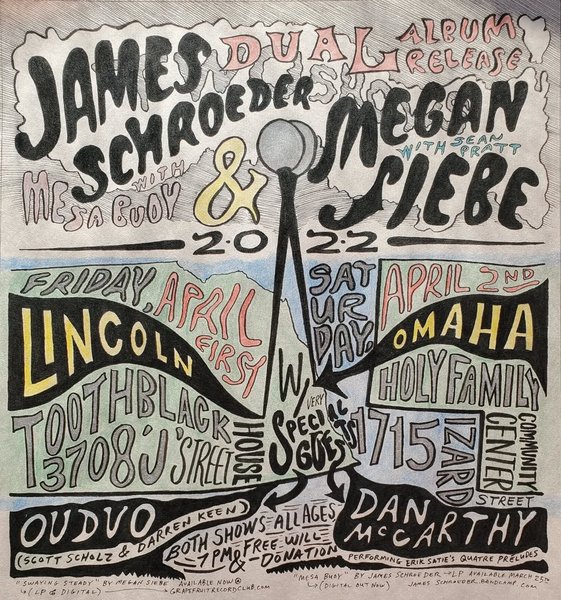 DUAL ALBUM RELEASE
JAMES SCHROEDER
WITH MESA BUOY
&
MEGAN SIEBE
WITH SEAN PRATT
2·0 2·2
FRIDAY, APRIL FIRST
LINCOLN
TOOTHBLACK HOUSE
3708 'J' STREET
SATURDAY, APRIL 2ND
OMAHA
HOLY FAMILY COMMUNITY CENTER
1715 IZARD STREET
W/ VERY SPECIAL GUESTS
OUDVO
(SCOTT SCHOLZ & DARREN KEEN)
BOTH SHOWS ALL AGES
7PM & FREE-WILL DONATION
DAN McCARTHY
PERFORMING ERIK SATIE'S QUATRE PRÉLUDES
"SWAYING STEADY" BY MEGAN SIEBE AVAILABLE NOW @
(LP & DIGITAL) GRAPEFRUITRECORDCLUB.COM
"MESA BUOY" BY JAMES SCHROEDER LP AVAILABLE MARCH 25TH
(DIGITAL OUT NOW) JAMES SCHROEDER.BANDCAMP.COM